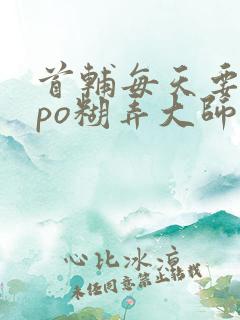 首辅每天要
po糊弄大师
心比冰凉
未经同意禁止转载